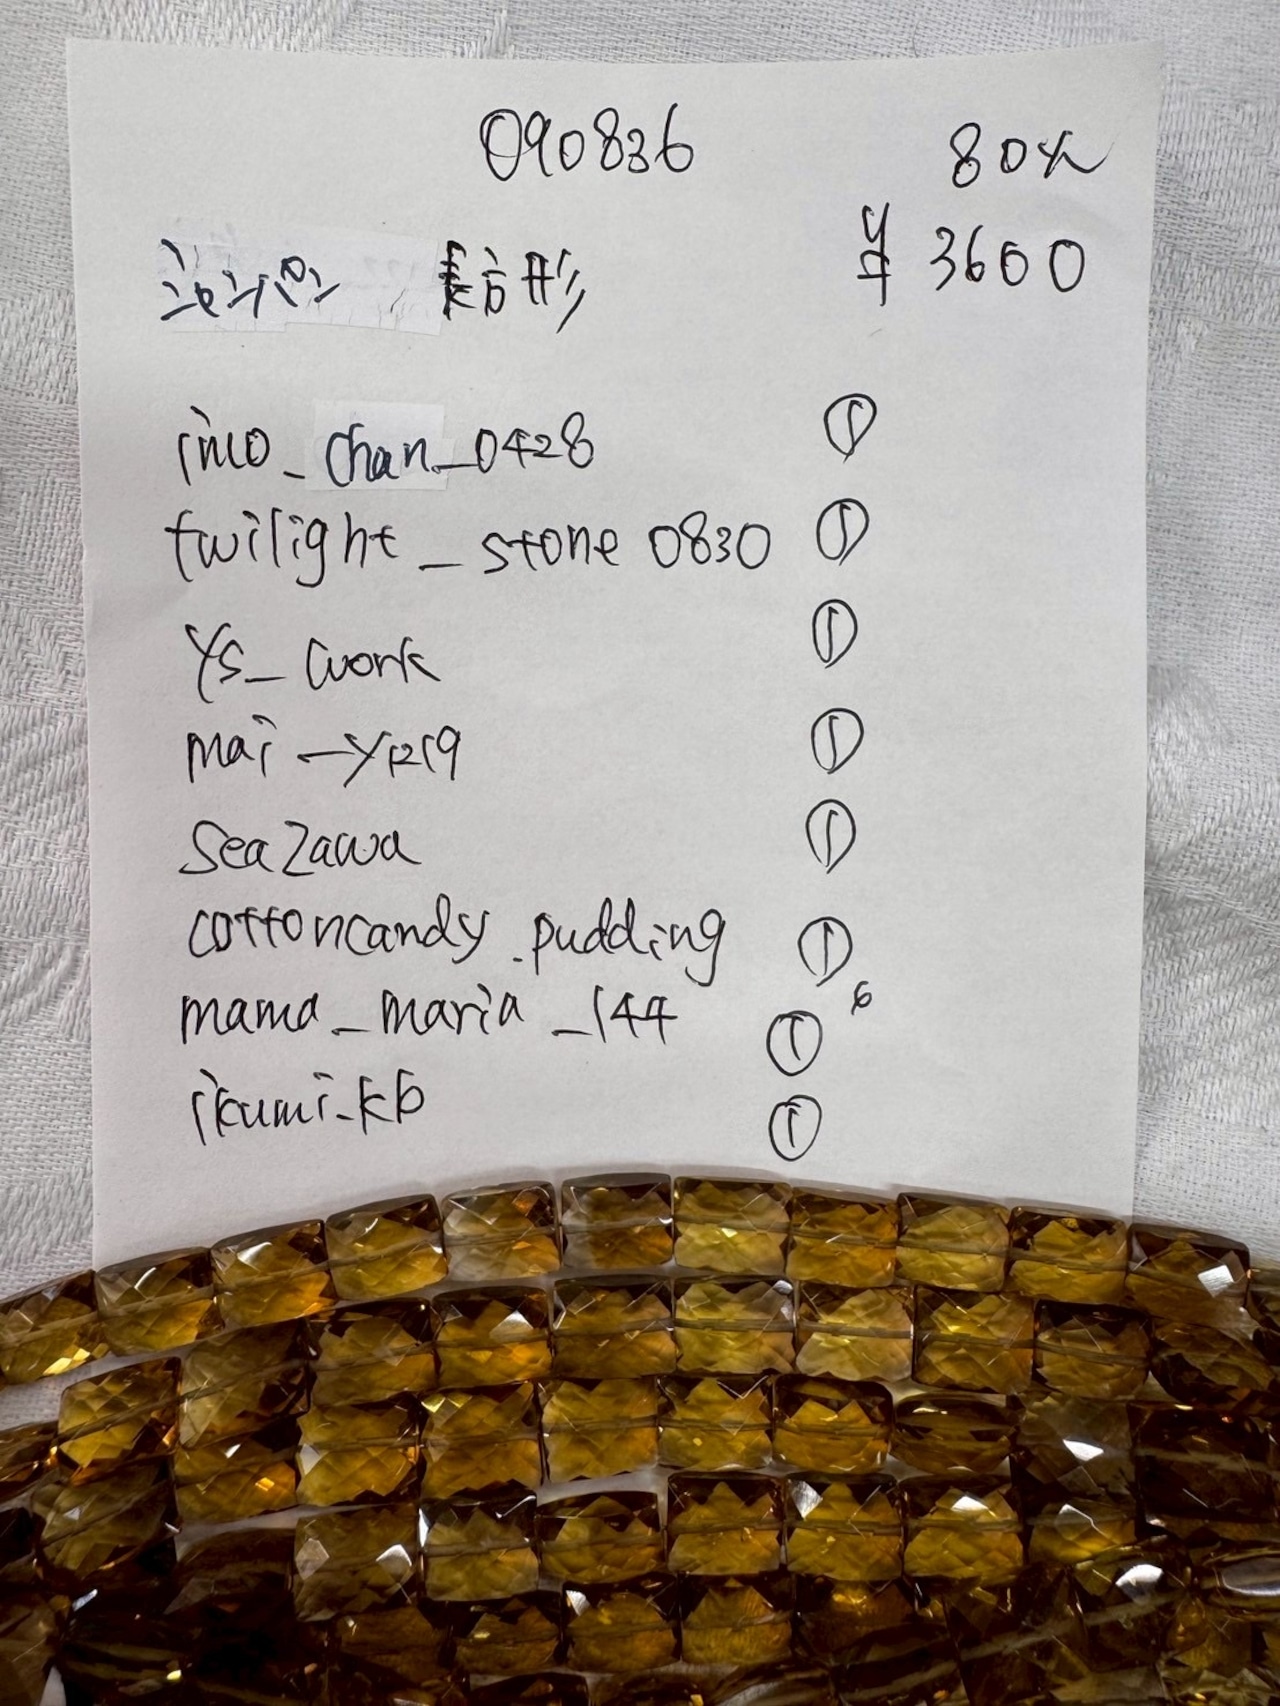 090836 80%
シャンパン 長方形 ¥3600
imo_chan_0428 ①
twilight_stone 0830 ①
ys_work ①
mai_y1219 ①
seazawa ①
cottoncandy.pudding ①
mama_maria_144 ① 6
ikumi_kb ①